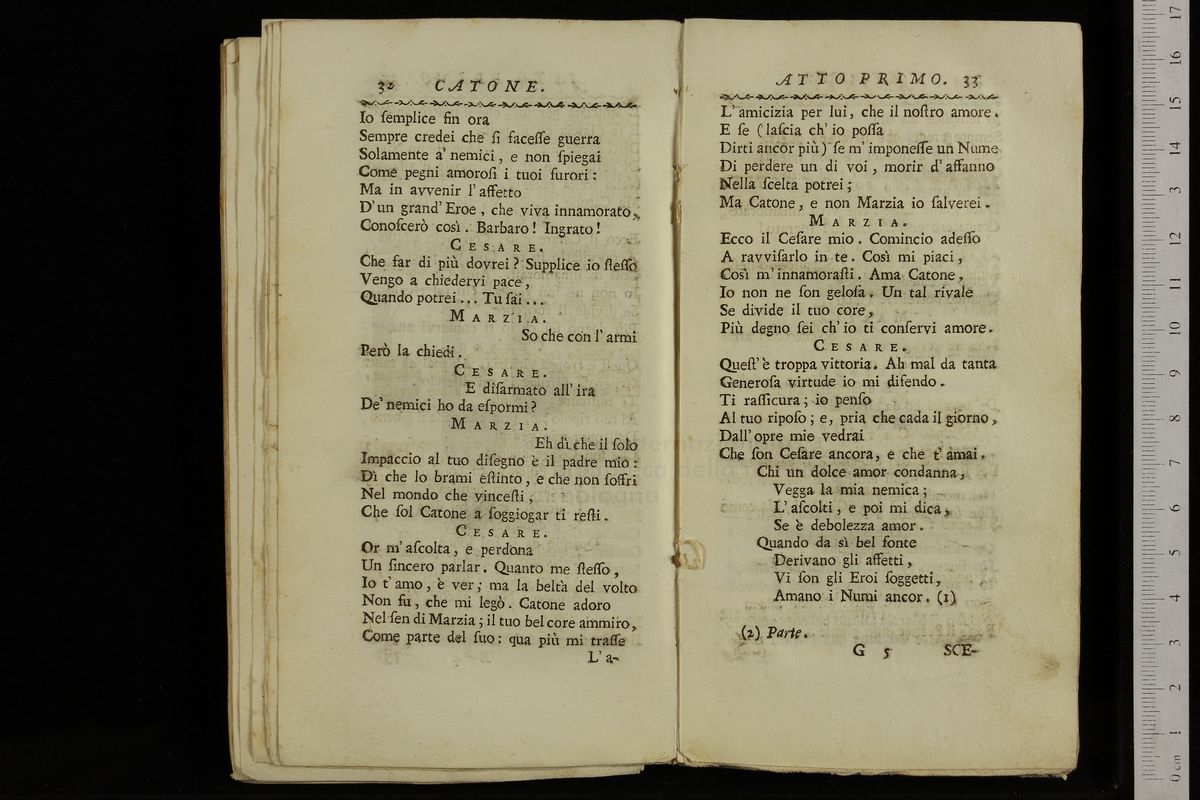 32 CATONE.
Io ſemplice fin ora
Sempre credei che ſi faceſſe guerra
Solamente a' nemici, e non ſpiegai
Come pegni amoroſi i tuoi furori:
Ma in avvenir l'affetto
D'un grand'Eroe, che viva innamorato,
Conoſcerò così. Barbaro! Ingrato!
CESARE.
Che far di più dovrei? Supplice io ſteſſo
Vengo a chiedervi pace,
Quando potrei... Tu ſai...
MARZIA.
So che con l'armi
Però la chiedi.
CESARE.
E diſarmato all'ira
De' nemici ho da eſpormi?
MARZIA.
Eh dì che il ſolo
Impaccio al tuo diſegno è il padre mio:
Dì che lo brami eſtinto, e che non ſoffri
Nel mondo che vinceſti,
Che ſol Catone a ſoggiogar ti reſti.
CESARE.
Or m'aſcolta, e perdona
Un ſincero parlar. Quanto me ſteſſo,
Io t'amo, è ver; ma la beltà del volto
Non fu, che mi legò. Catone adoro
Nel ſen di Marzia; il tuo bel core ammiro,
Come parte del ſuo: qua più mi traſſe
L'a-
ATTO PRIMO. 33
L'amicizia per lui, che il noſtro amore.
E ſe (laſcia ch'io poſſa
Dirti ancor più) ſe m'imponeſſe un Nume
Di perdere un di voi, morir d'affanno
Nella ſcelta potrei;
Ma Catone, e non Marzia io ſalverei.
MARZIA.
Ecco il Ceſare mio. Comincio adeſſo
A ravviſarlo in te. Così mi piaci,
Così m'innamoraſti. Ama Catone,
Io non ne ſon geloſa. Un tal rivale
Se divide il tuo core,
Più degno ſei ch'io ti conſervi amore.
CESARE.
Queſt'è troppa vittoria. Ah mal da tanta
Generoſa virtude io mi difendo.
Ti raſſicura; io penſo
Al tuo ripoſo; e, pria che cada il giorno,
Dall'opre mie vedrai
Che ſon Ceſare ancora, e che t'amai.
Chi un dolce amor condanna,
Vegga la mia nemica;
L'aſcolti, e poi mi dica,
Se è debolezza amor.
Quando da sì bel fonte
Derivano gli affetti,
Vi ſon gli Eroi ſoggetti,
Amano i Numi ancor. (1)
(2) Parte.
G 5 SCE-
0 cm 1 2 3 4 5 6 7 8 9 10 11 12 13 14 15 16 17